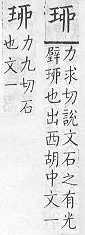 珋
力求切說文石之有光
璧珋也出西胡中文一
珋
力九切石
也文一